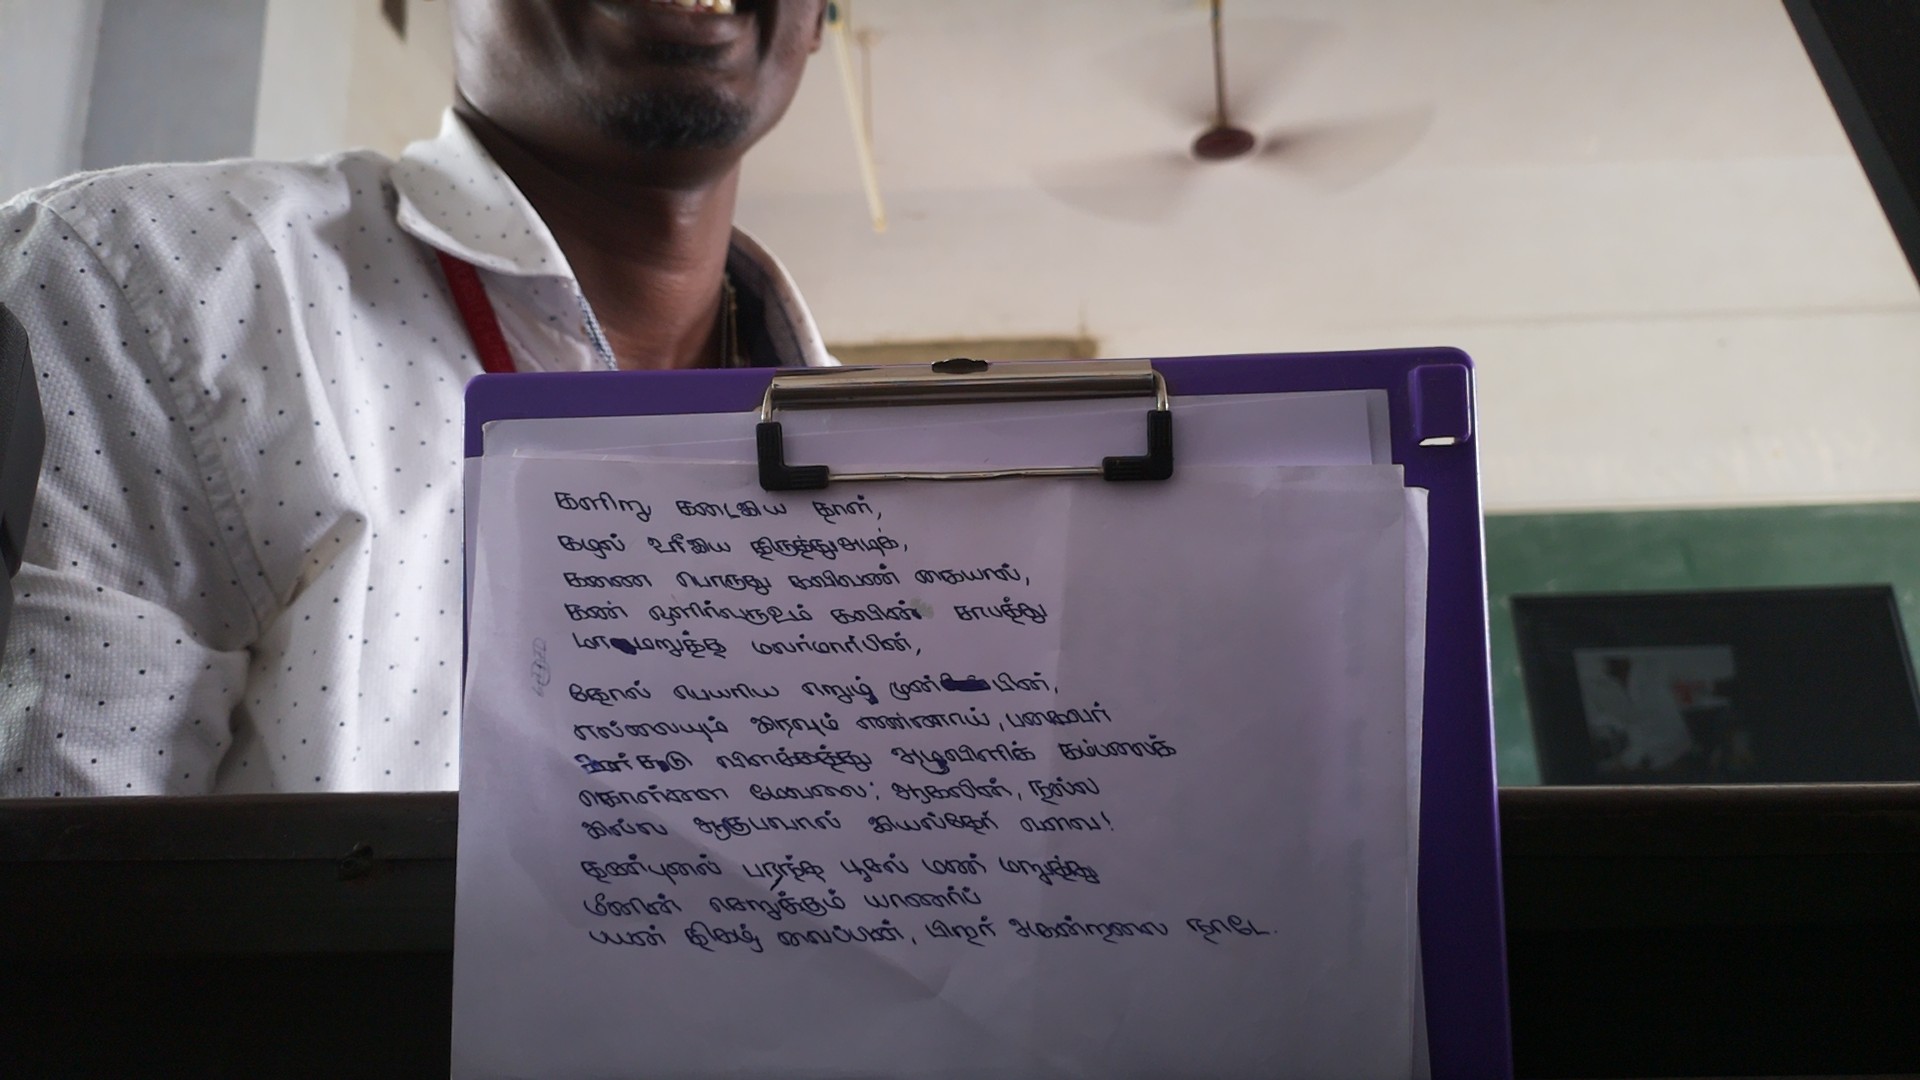 களிறு கடைஇய தாள்,
கழல் உரீஇய திருந்துஅடிக்,
கணை பொருது கவிவண் கையால்,
கண் ஒளிர்வரூஉம் கவின் சாபத்து
மாமறுத்த மலர்மார்பின்,
தோல் பெயரிய எறுழ் முன்பின்,
எல்லையும் இரவும் எண்ணாய், பகைவர்
ஊர் சுடு விளக்கத்து அழுவிளிக் கம்பலைக்
கொள்ளை மேவலை; ஆகலின், நல்ல
இல்ல ஆகுபவால் இயல்தேர் வளவ!
தண்புனல் பரந்த பூசல் மண் மறுத்து
மீனின் செறுக்கும் யாணர்ப்
பயன் திகழ் வைப்பன், பிறர் அகன்றலை நாடே.